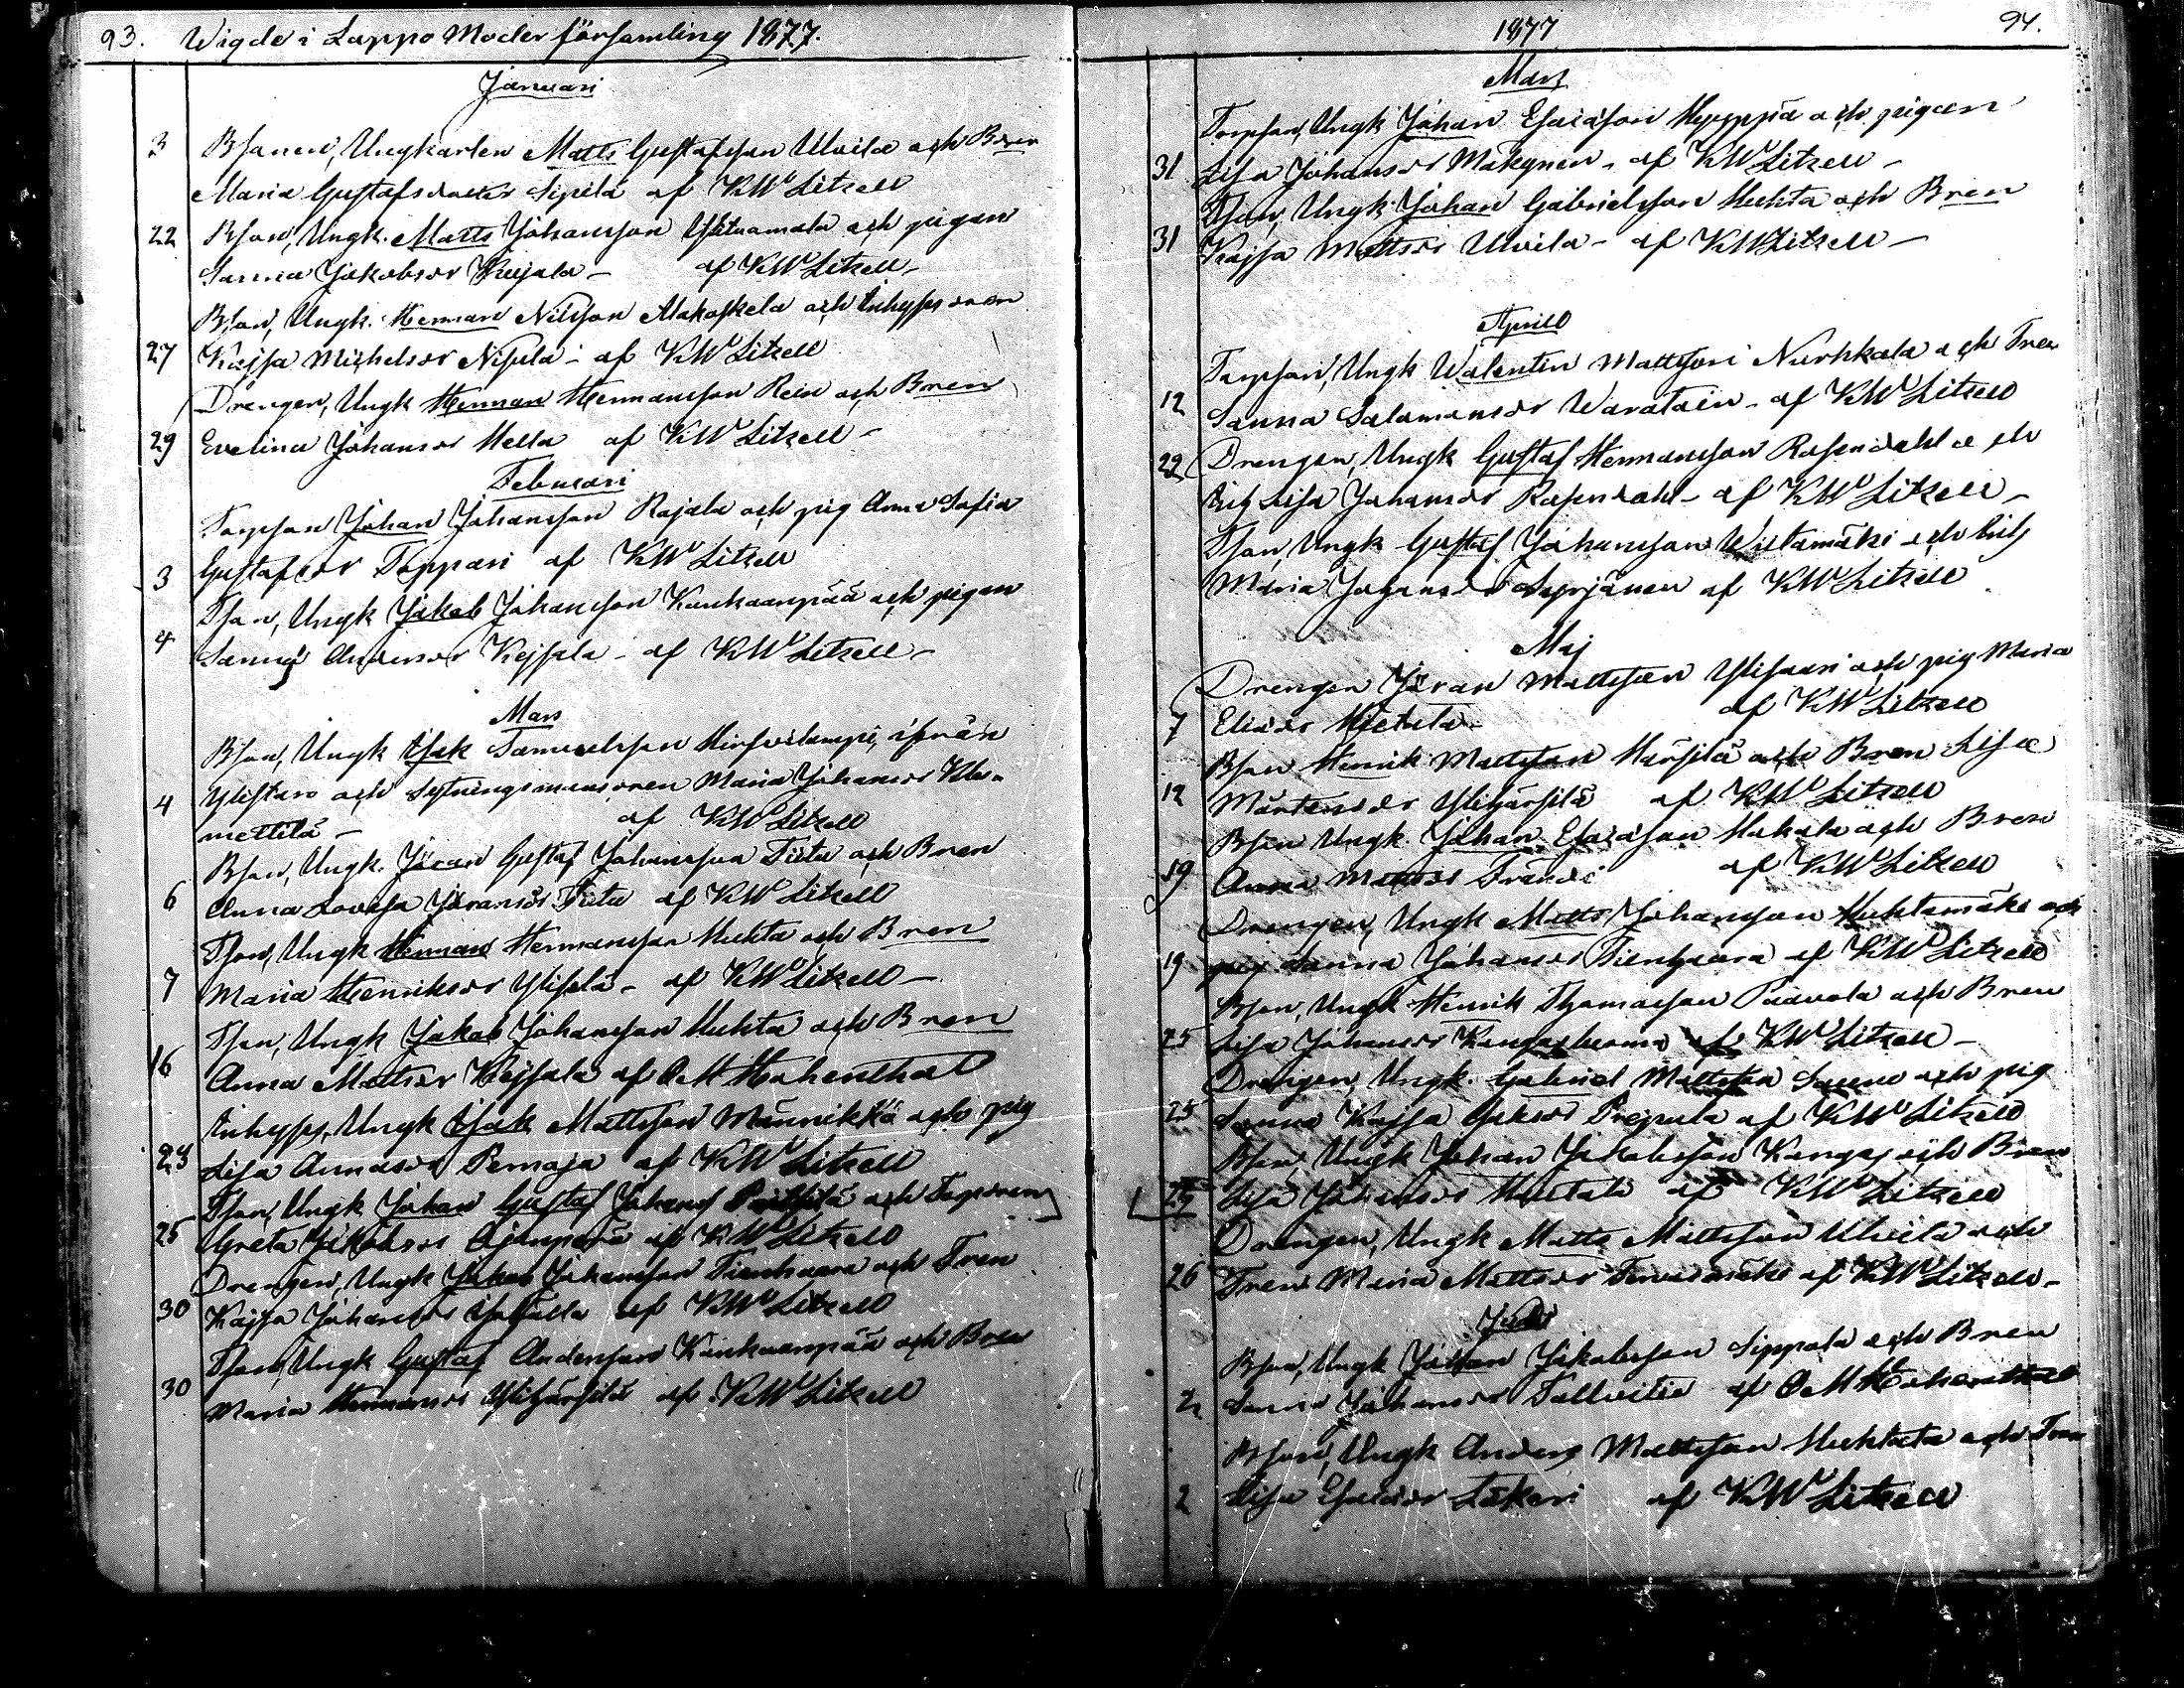 93. Wigde i Lappo Moder församling 1877.
Januari
3 Bsonen, Ungkarlen Matts Gustafsson Uvila och Bdren
Maria Gustafsdotter Sipilä af KWLitzell
22 Bson, Ungk. Matts Johansson Ylituomala och pigan
Sanna Jakobsdr Keisala – af KWLitzell –
Bson, Ungk. Herman Nilsson Alakoskela och Inhyssdren
27 Kajsa Michelsdr Nisula – af KWLitzell
Drengen, Ungk Herman Hermansson Rein och Bdren
29 Evelina Johansdr Hella af KWLitzell –
Februari
Torpson Johan Johansson Rajala och pig Anna Sofia
3 Gustafsdr Toppari af KWLitzell
Tson, Ungk Jakob Johansson Kankaanpää och pigan
4 Sanna Andersdr Kejsala – af KWLitzell –
Mars
Bson, Ungk Isak Samuelsson Hirvilampi, ifrån
4 Ylistaro och Sytningsmansdren Maria Johansdr
mettilä – af KWLitzell
Bson, Ungk. Jöran Gustaf Johansson Tiitu och Bdren
6 Anna Lovisa Jöransdr Tiitu af KWLitzell
Tson, Ungk Herman Hermansson Huhta och Bdren
7 Maria Henriksdr Yliselä – af KWLitzell –
Tson, Ungk Jakob Johansson Huhta och Bdren
16 Anna Mattsdr Kejsala af AHHohenthal
Inhyss, Ungk Isak Mattsson Männikkö och pig
23 Lisa Annasdr Pernaja af KWLitzell
Tson, Ungk Johan Gustaf Johans och Torpdren
25 Greta Jakobsdr af KWLitzell
Drengen, Ungk Jakob Johansson Tienhaara och Tdren
30 Kajsa Johansdr af KWLitzell
Tson, Ungk Gustaf Andersson Kankaanpää och Bdren
30 Maria Hermansdr Ylihärsilä af KWLitzell
1877 94.
Mars
Torpson, Ungk Johan Esaiasson Hyyppä och pigan
31 Lisa Johansdr Mäkynen – af KWLitzell –
Tson, Ungk Johan Gabrielsson Huhta och Bdren
31 Kajsa Mattsdr Uvila – af KWLitzell –
Aprill
Torpson, Ungk Walentin Mattsson Nurkkala och Tdren
12 Sanna Salamonsdr Waratain – af KWLitzell
22 Drengen, Ungk Gustaf Hermansson Rosendahl och
Inh Lisa Johansdr Rosendahl – af KWLitzell –
Tson, Ungk Gustaf Johansson Wiitamäki och Inh
Maria Johansdr Syrjänen af KWLitzell
Maj
Drengen Jöran Mattsson Ylisaari och pig Maria
7 Eliasdr Hietala – af KWLitzell
Bson Henrik Mattsson Härsilä och Bdren Lisa
12 Mårtensdr Ylihärsilä af KWLitzell
Bson Ungk. Johan Esaiasson Hakala och Bdren
19 Anna Mattsdr Frändi af KWLitzell
Drengen, Ungk Matts Johansson Huhtamäki och
19 pig Sanna Johansdr Tienhaara af KWLitzell
Bson, Ungk Henrik Thomasson Paavola och Bdren
25 Lisa Johansdr Kangasluoma af KWLitzell –
Drengen, Ungk. Gabriel Mattsson och pig
25 Sanna Kajsa Isaksdr Prepula af KWLitzell
Bson, Ungk Johan Jakobsson Kangas och Bdren
25 Lisa Johansdr Huhtala af KWLitzell
Drengen, Ungk Matts Mattsson Uvila och
26 Tdren Maria Mattsdr af KWLitzell –
Juni
Bson, Ungk Johan Jakobsson Sippola och Bdren
2 Sanna Johansdr Tallvitie af AHHohenthal
Bson, Ungk Anders Mattsson Huhtala och Tdren
2 Lisa Esaiasdr Lakari af KWLitzell